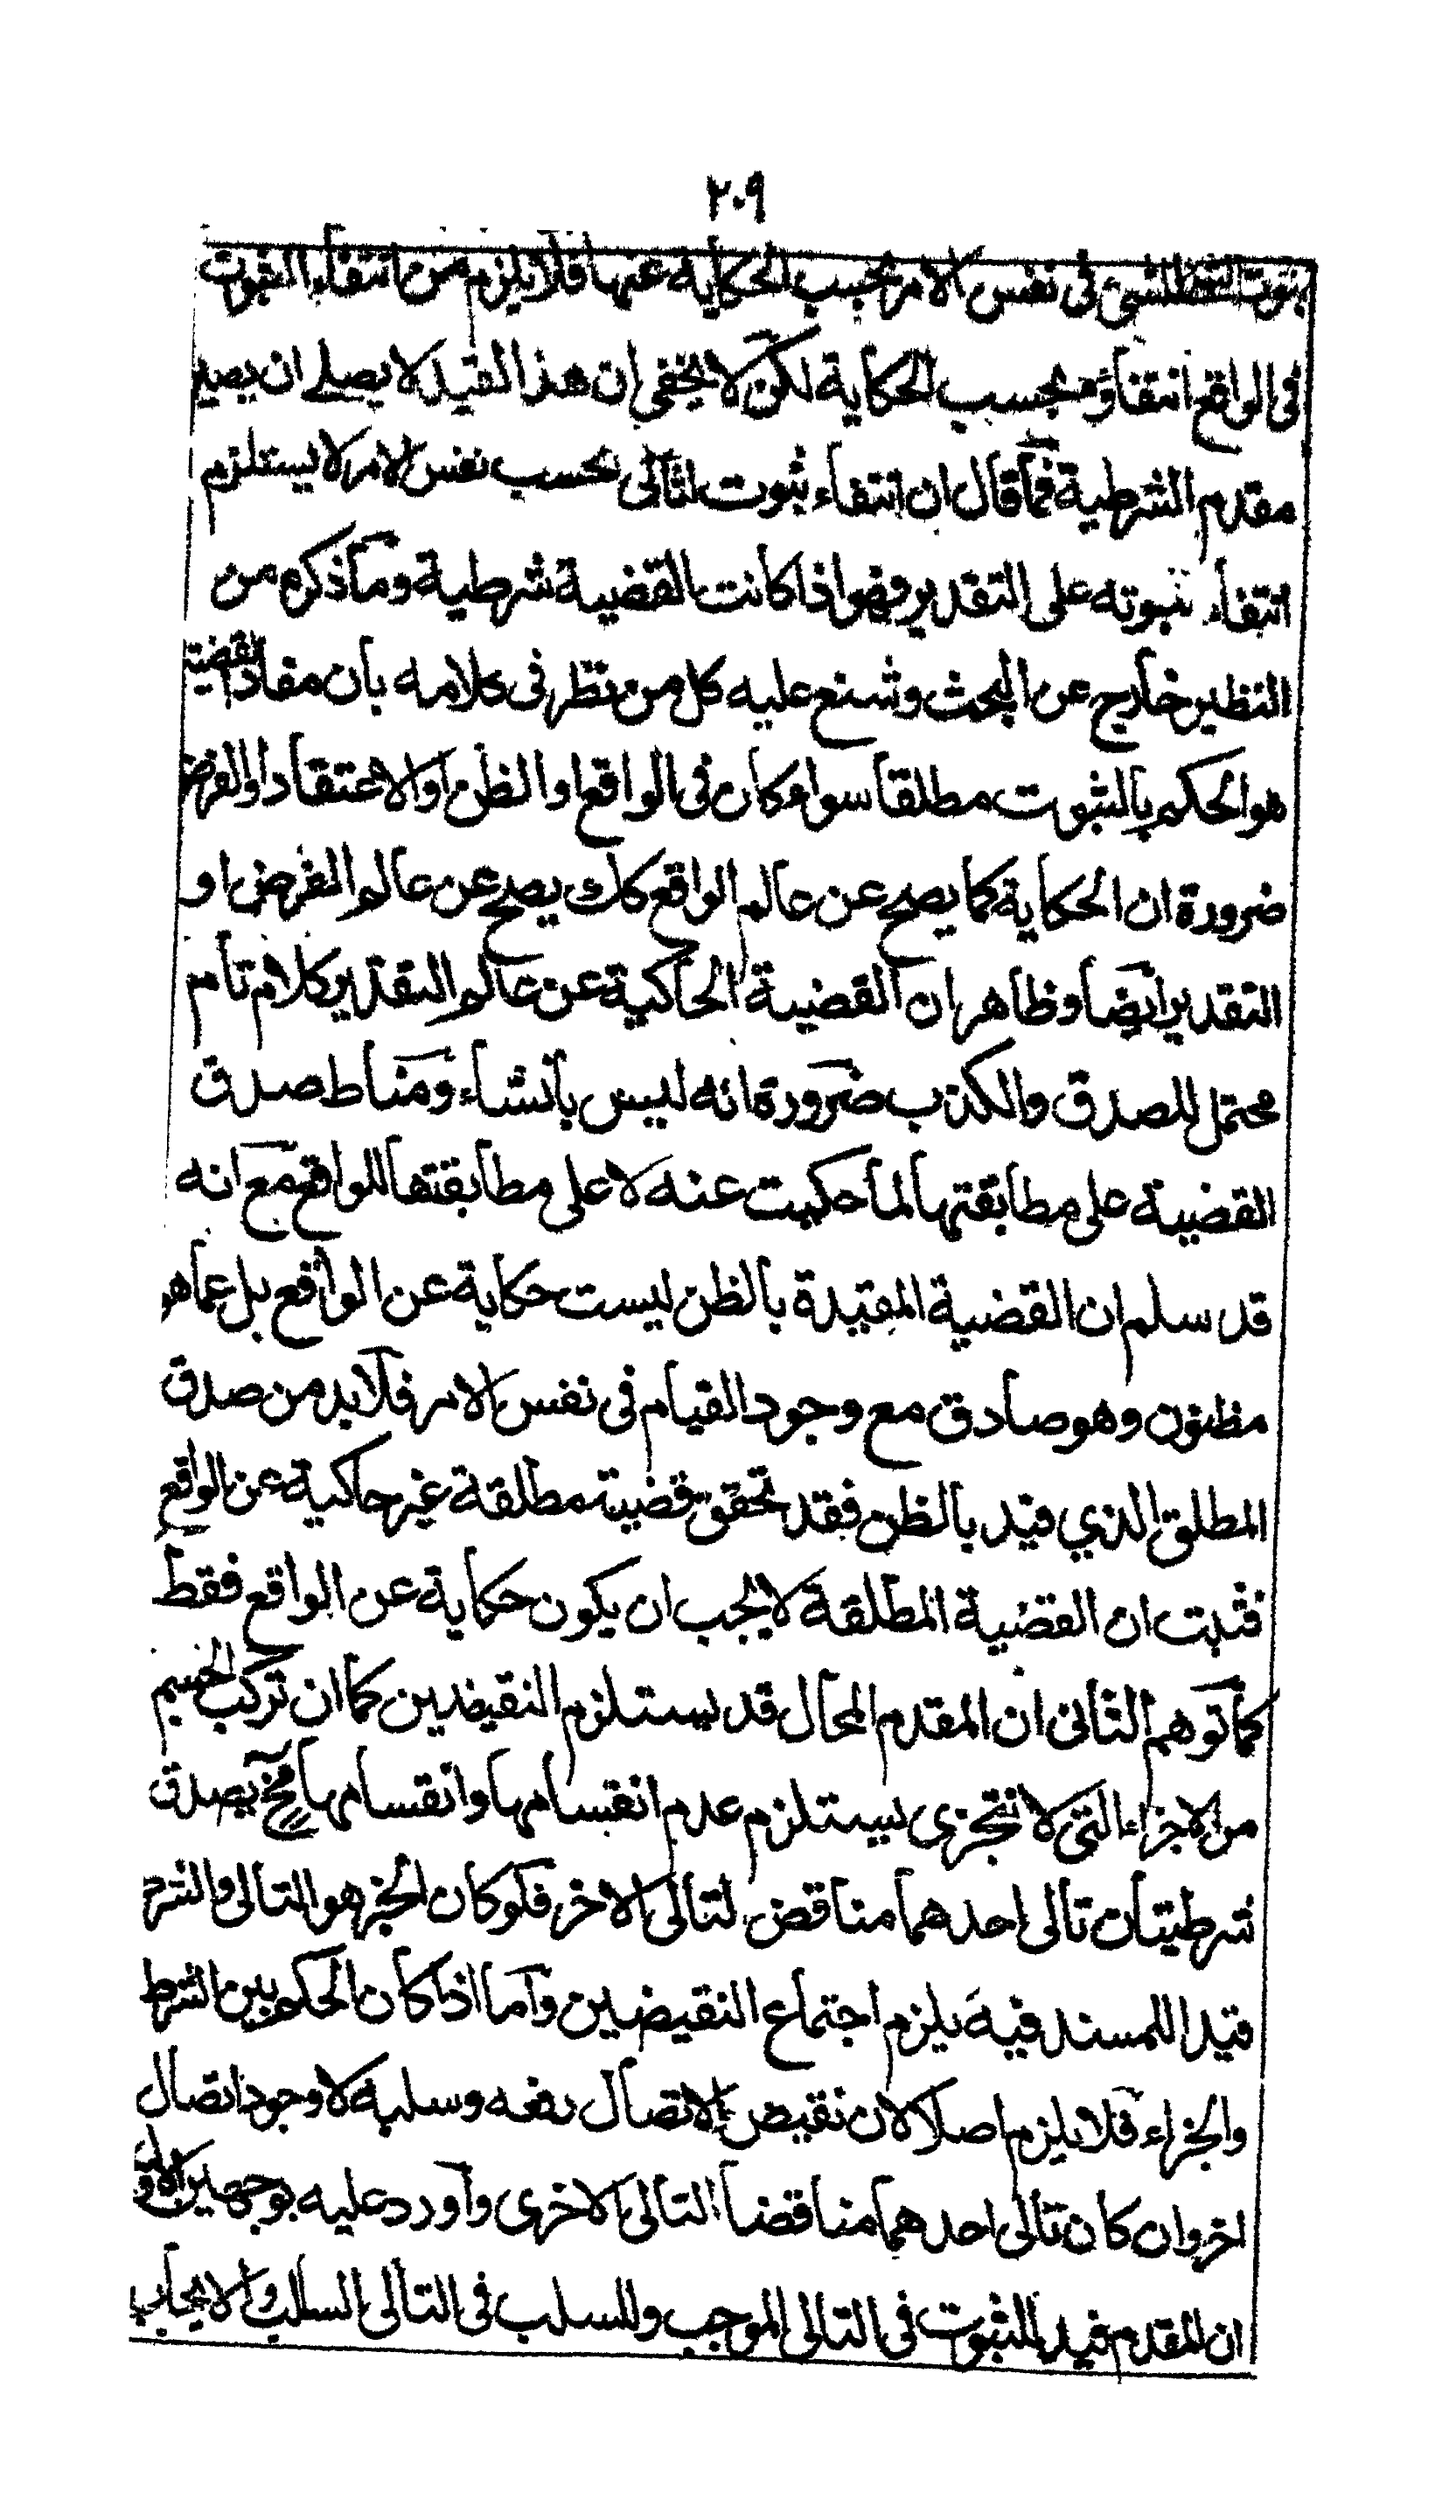 ٢٠٩
بثبوت الشئ للشئ فى نفس الامر بحسب الحكاية عنها فلا يلزم من انتفاء الثبوت
فى الواقع انتفاؤه بحسب الحكاية لكن لا يخفى ان هذا القيد لا يصلح ان يصير
مقدم الشرطية فما قال ان انتفاء ثبوت التالى بحسب نفس الامر لا يستلزم
انتفاء ثبوته على التقدير فهو اذا كانت القضية شرطية وما ذكره من
النظير خارج عن البحث وشنع عليه كل من نظر فى كلامه بان مفاد القضية
هو الحكم بالثبوت مطلقا سواء كان فى الواقع او الظن او الاعتقاد او الفرض
ضرورة ان الحكاية كما يصح عن عالم الواقع كك يصح عن عالم الفرض او
التقدير ايضا وظاهر ان القضية الحاكية عن عالم التقدير كلام تام
محتمل للصدق والكذب ضرورة انه ليس بانشاء ومناط صدق
القضية على مطابقتها لما حكيت عنه لا على مطابقتها للواقع مع انه
قد سلم ان القضية المقيدة بالظن ليست حكاية عن الواقع بل عما هو
مظنون وهو صادق مع وجود القيام فى نفس الامر فلا بد من صدق
المطلق الذي قيد بالظن فقد تحقق قضية مطلقة غير حاكية عن الواقع
فثبت ان القضية المطلقة لا يجب ان يكون حكاية عن الواقع فقط
كما توهم الثانى ان المقدم المحال قد يستلزم النقيضين كما ان تركب الجسم
من الاجزاء التى لا تتجزى يستلزم عدم انقسامها وانقسامها فح يصدق
شرطيتان تالى احدهما مناقض لتالى الاخر فلو كان الجزء هو التالى والشرط
قيدا للمسند فيه يلزم اجتماع النقيضين واما اذا كان الحكم بين الشرط
والجزاء فلا يلزم اصلا لان نقيض الاتصال رفعه وسلبه لا وجود اتصال
اخر وان كان تالى احدهما مناقضا لتالى الاخرى واورد عليه بوجهين الاول
ان المقدم قيد للثبوت فى التالى الموجب وللسلب فى التالى السالب والايجاب